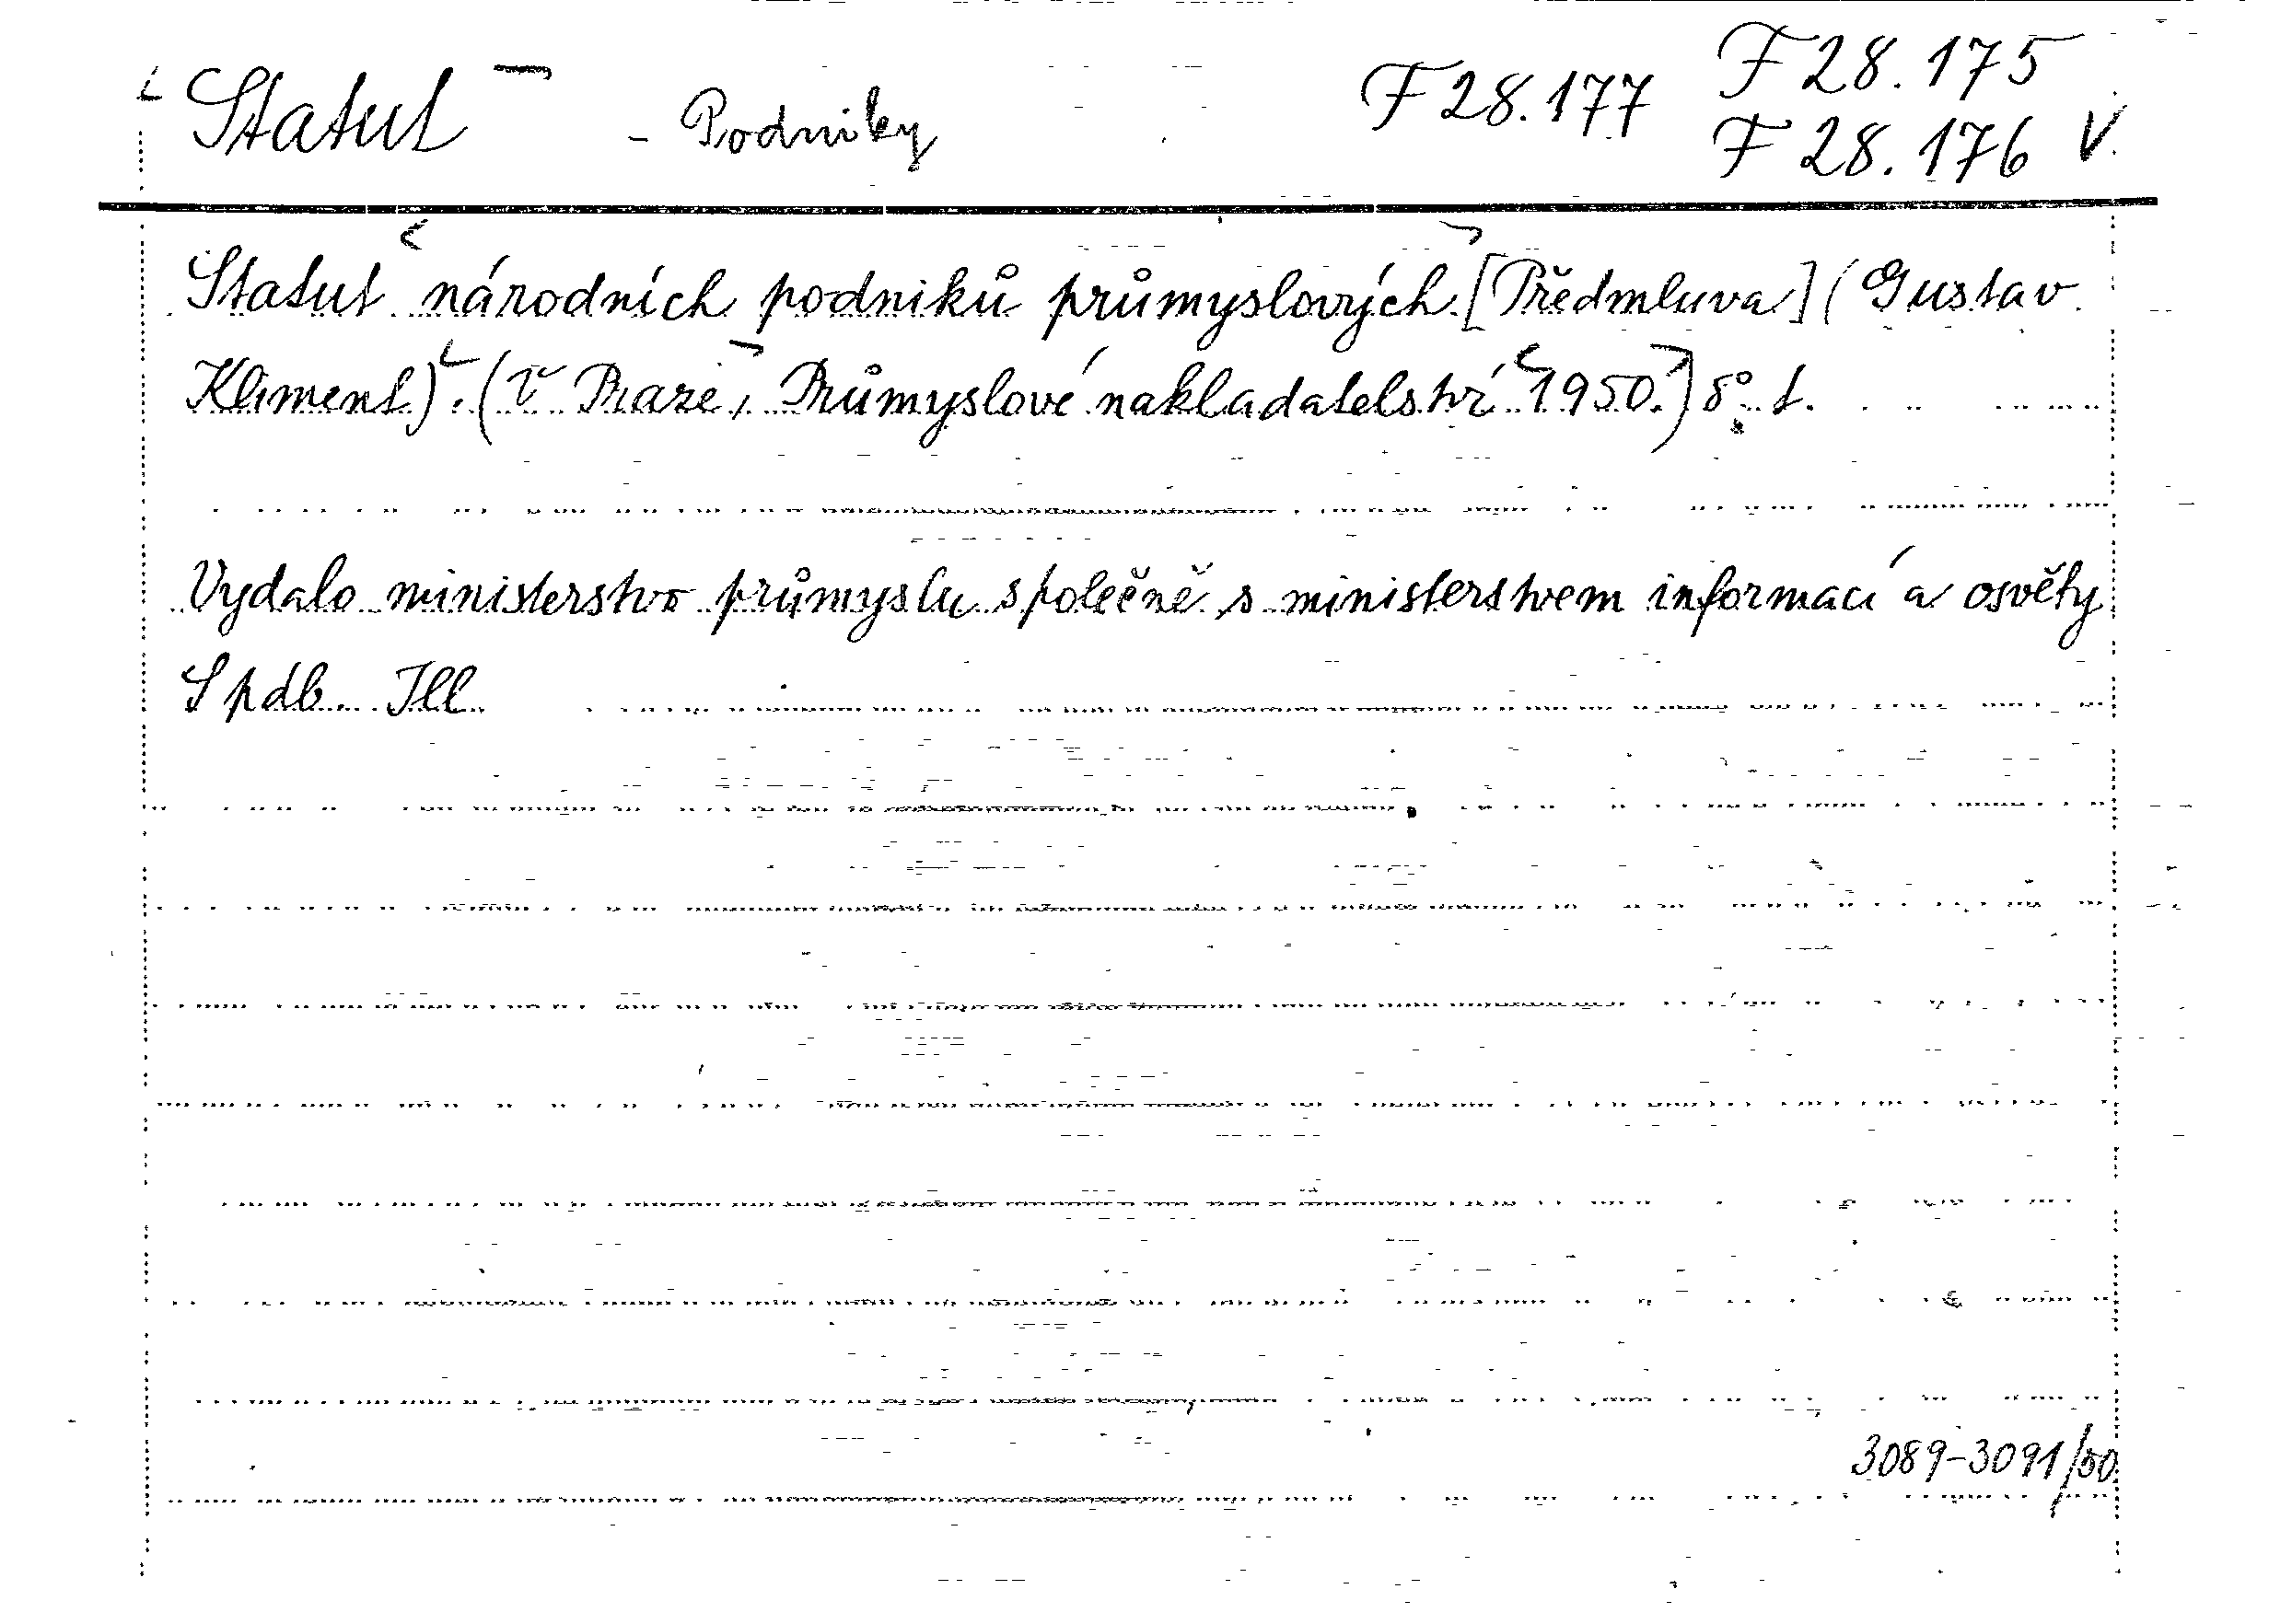 Statut - Podniky F 28.177 F 28.175
F 28.176 V
Statut národních podniků průmyslových. [Předmluva] (Gustav
Kliment). (V Praze, Průmyslové nakladatelství 1950.) 8° t.
Vydalo ministerstvo průmyslu společně s ministerstvem informací a osvěty
Spdb. Ill.
3089-3091/50